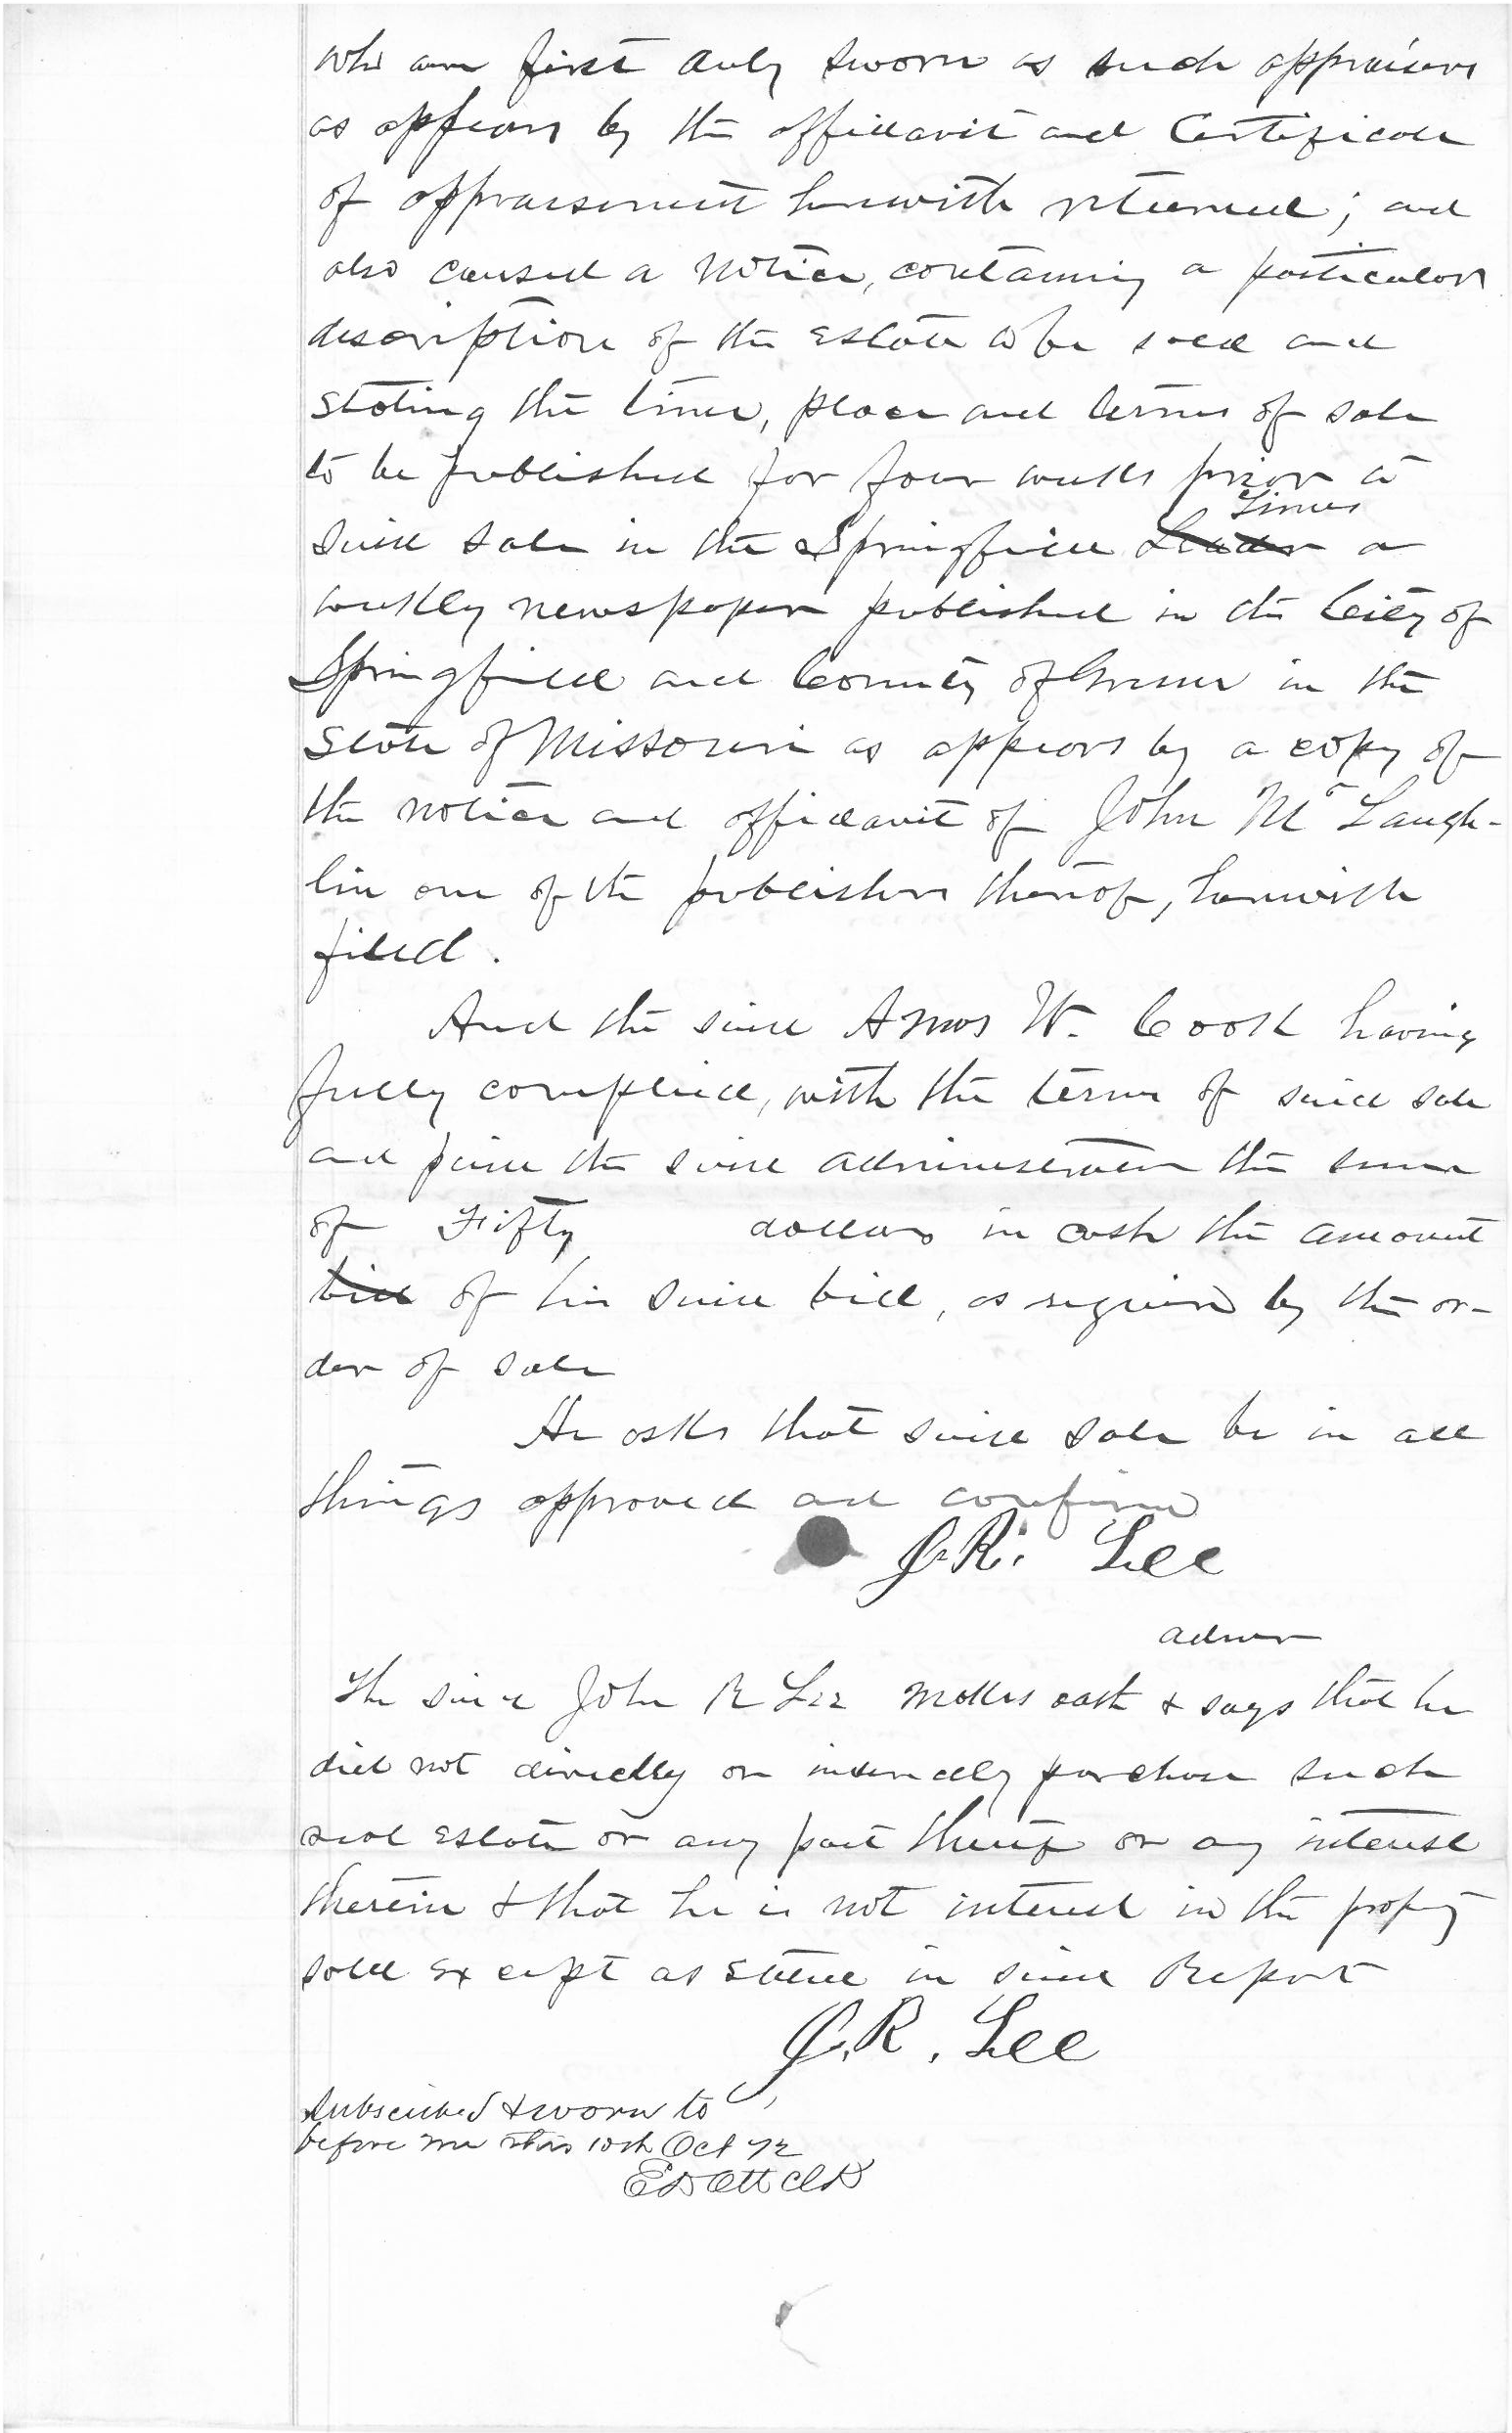 who were first duly sworn as such appraisers
as appears by the affidavit and Certificate
of appraisement herewith returned; and
also caused a notice, containing a particular
description of the Estate to be sold and
stating the time, place and terms of sale
to be published for four weeks prior to
said sale in the Springfield Leader Times a
weekly newspaper published in the City of
Springfield and County of Greene in the
State of Missouri as appears by a copy of
the notice and affidavit of John Mc Laugh-
lin one of the publishers thereof, herewith
filed.
And the said Amos W. Cook having
fully complied, with the terms of said sale
and paid the said administrator the sum
of Fifty dollars in cash the amount
bid of his said bid, as required by the or-
der of sale
He asks that said sale be in all
things approved and confirmed
J. R. Lee
admr
The said John R Lee makes oath & says that he
did not directly or indirectly purchase such
real Estate or any part thereof or any interest
therein & that he is not interested in the property
sold except as stated in said Report
J. R. Lee
Subscribed & sworn to
before me this 10th Oct 72
E D Ott Clk